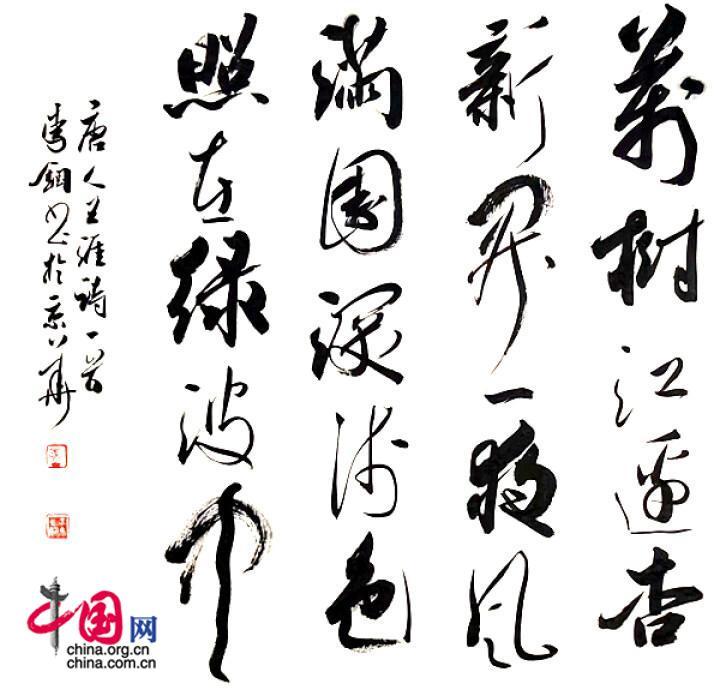 萬樹江邊杏
新開一夜風
滿園深淺色
照在綠波中
唐人王涯詩一首
李鋼書於京華
中国网
china.org.cn
china.com.cn